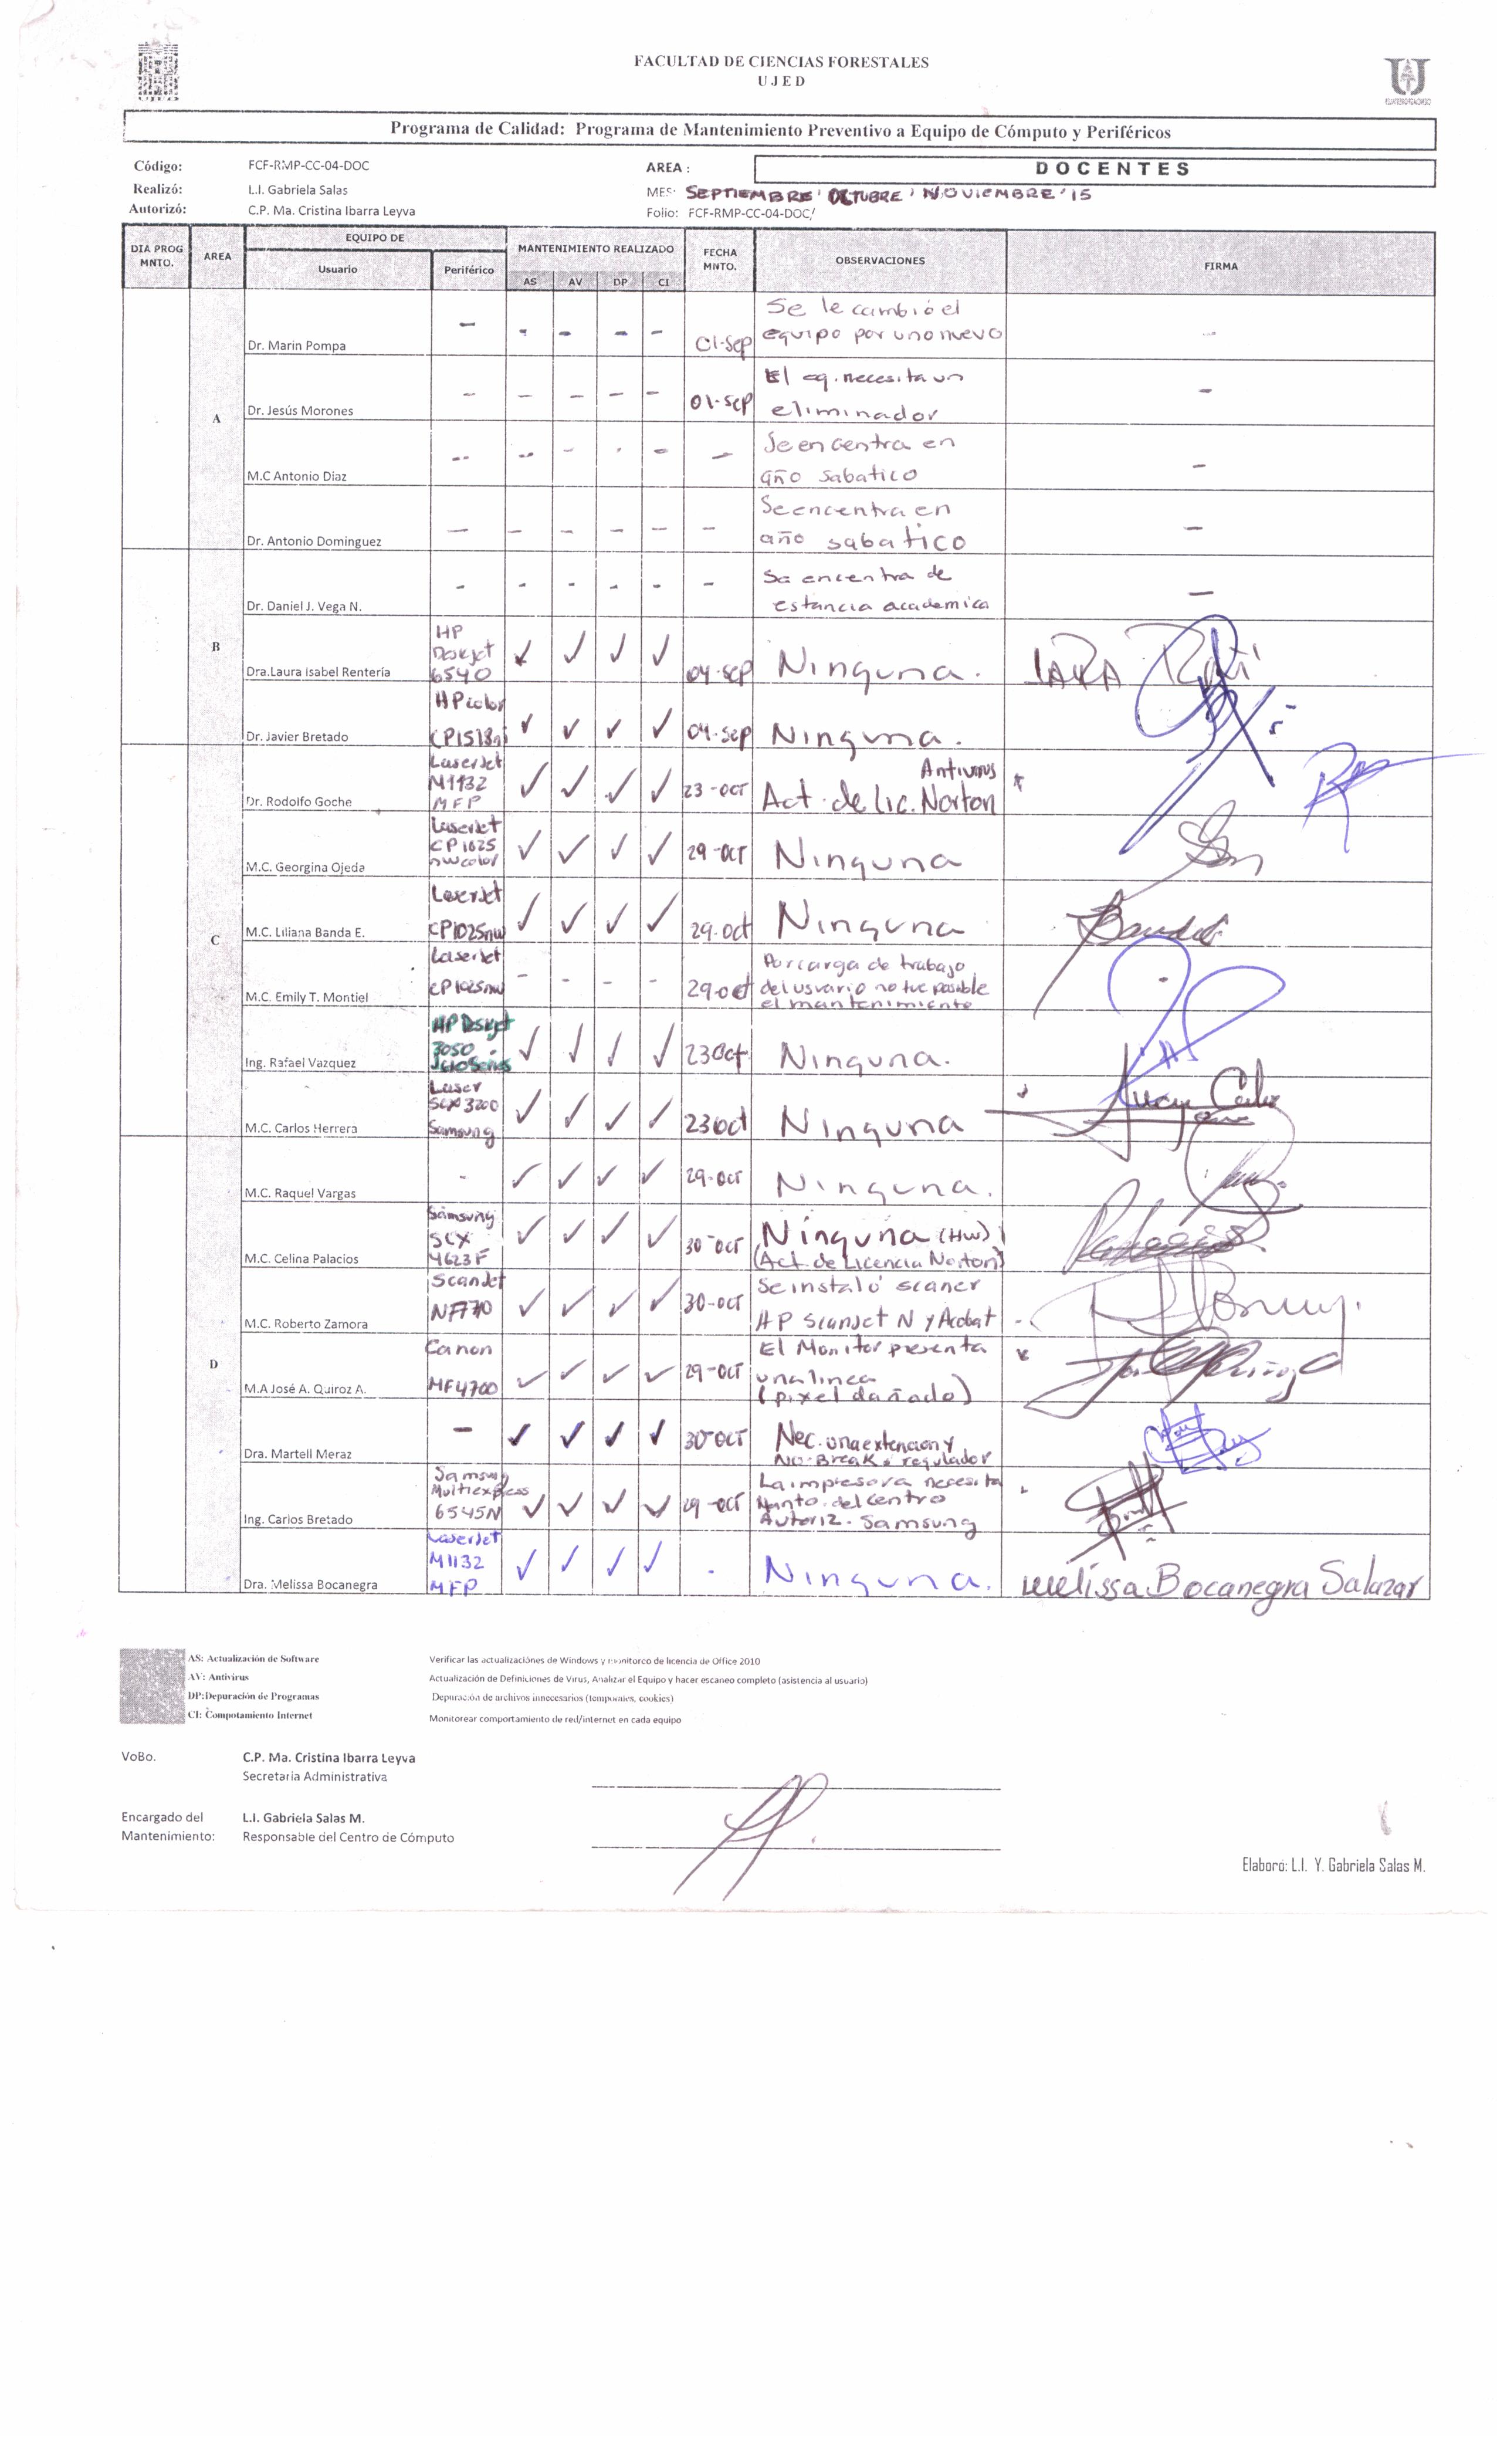 FACULTAD DE CIENCIAS FORESTALES
UJED
Programa de Calidad: Programa de Mantenimiento Preventivo a Equipo de Cómputo y Periféricos
Código: FCF-RMP-CC-04-DOC AREA : DOCENTES
Realizó: L.I. Gabriela Salas MES: SEPTIEMBRE ' OCTUBRE ' NOVIEMBRE '15
Autorizó: C.P. Ma. Cristina Ibarra Leyva Folio: FCF-RMP-CC-04-DOC/
DIA PROG MNTO. AREA EQUIPO DE MANTENIMIENTO REALIZADO FECHA MNTO. OBSERVACIONES FIRMA
Usuario Periférico AS AV DP CI
A
Dr. Marín Pompa - - - - - 01-Sep Se le cambió el
equipo por uno nuevo -
Dr. Jesús Morones - - - - - 01-Sep El eq. necesita un
eliminador -
M.C Antonio Diaz - - - - - - Se encentra en
año sabatico -
Dr. Antonio Dominguez - - - - - - Se encentra en
año sabatico -
B
Dr. Daniel J. Vega N. - - - - - - Se encentra de
estancia academica -
Dra.Laura Isabel Rentería HP
Deskjet
6540 ✓ ✓ ✓ ✓ 04-sep Ninguna.
Dr. Javier Bretado HP color
CP1518ni ✓ ✓ ✓ ✓ 04-sep Ninguna.
C
Dr. Rodolfo Goche LaserJet
M1132
MFP ✓ ✓ ✓ ✓ 23-oct Antivirus
Act. de Lic. Norton
M.C. Georgina Ojeda LaserJet
CP1025
nwcolor ✓ ✓ ✓ ✓ 29-oct Ninguna
M.C. Liliana Banda E. LaserJet
CP1025nw ✓ ✓ ✓ ✓ 29-oct Ninguna
M.C. Emily T. Montiel LaserJet
CP1025nw - - - - 29-oct Por carga de trabajo
del usuario no fue posible
el mantenimiento -
Ing. Rafael Vazquez HP Deskjet
3050
J610 Series ✓ ✓ ✓ ✓ 23 Oct Ninguna.
M.C. Carlos Herrera Laser
SCX3200
Samsung ✓ ✓ ✓ ✓ 23 oct Ninguna
D
M.C. Raquel Vargas - ✓ ✓ ✓ ✓ 29-oct Ninguna.
M.C. Celina Palacios Samsung
SCX
4623F ✓ ✓ ✓ ✓ 30-oct Ninguna (HW)
(Act. de Licencia Norton)
M.C. Roberto Zamora ScanJet
N7710 ✓ ✓ ✓ ✓ 30-oct Se instaló scaner
HP ScanJet N y Acobat
M.A José A. Quiroz A. Canon
MF4700 ✓ ✓ ✓ ✓ 29-oct El Monitor presenta
una linea
(pixel dañado)
Dra. Martell Meraz - ✓ ✓ ✓ ✓ 30-oct Nec. una extencion y
No-Break o regulador
Ing. Carlos Bretado Samsung
Multiexpress
6545N ✓ ✓ ✓ ✓ 29-oct La impresora necesita
Manto. del Centro
Autoriz. Samsung
Dra. Melissa Bocanegra LaserJet
M1132
MFP ✓ ✓ ✓ ✓ - Ninguna. Melissa Bocanegra Salazar
AS: Actualización de Software Verificar las actualizaciónes de Windows y monitorco de licencia de Office 2010
AV: Antivirus Actualización de Definiciones de Virus, Analizar el Equipo y hacer escaneo completo (asistencia al usuario)
DP:Depuración de Programas Depuración de archivos innecesarios (temporales, cookies)
CI: Compotamiento Internet Monitorear comportamiento de red/internet en cada equipo
VoBo. C.P. Ma. Cristina Ibarra Leyva
Secretaria Administrativa
Encargado del L.I. Gabriela Salas M.
Mantenimiento: Responsable del Centro de Cómputo
Elaboró: L.I. Y. Gabriela Salas M.